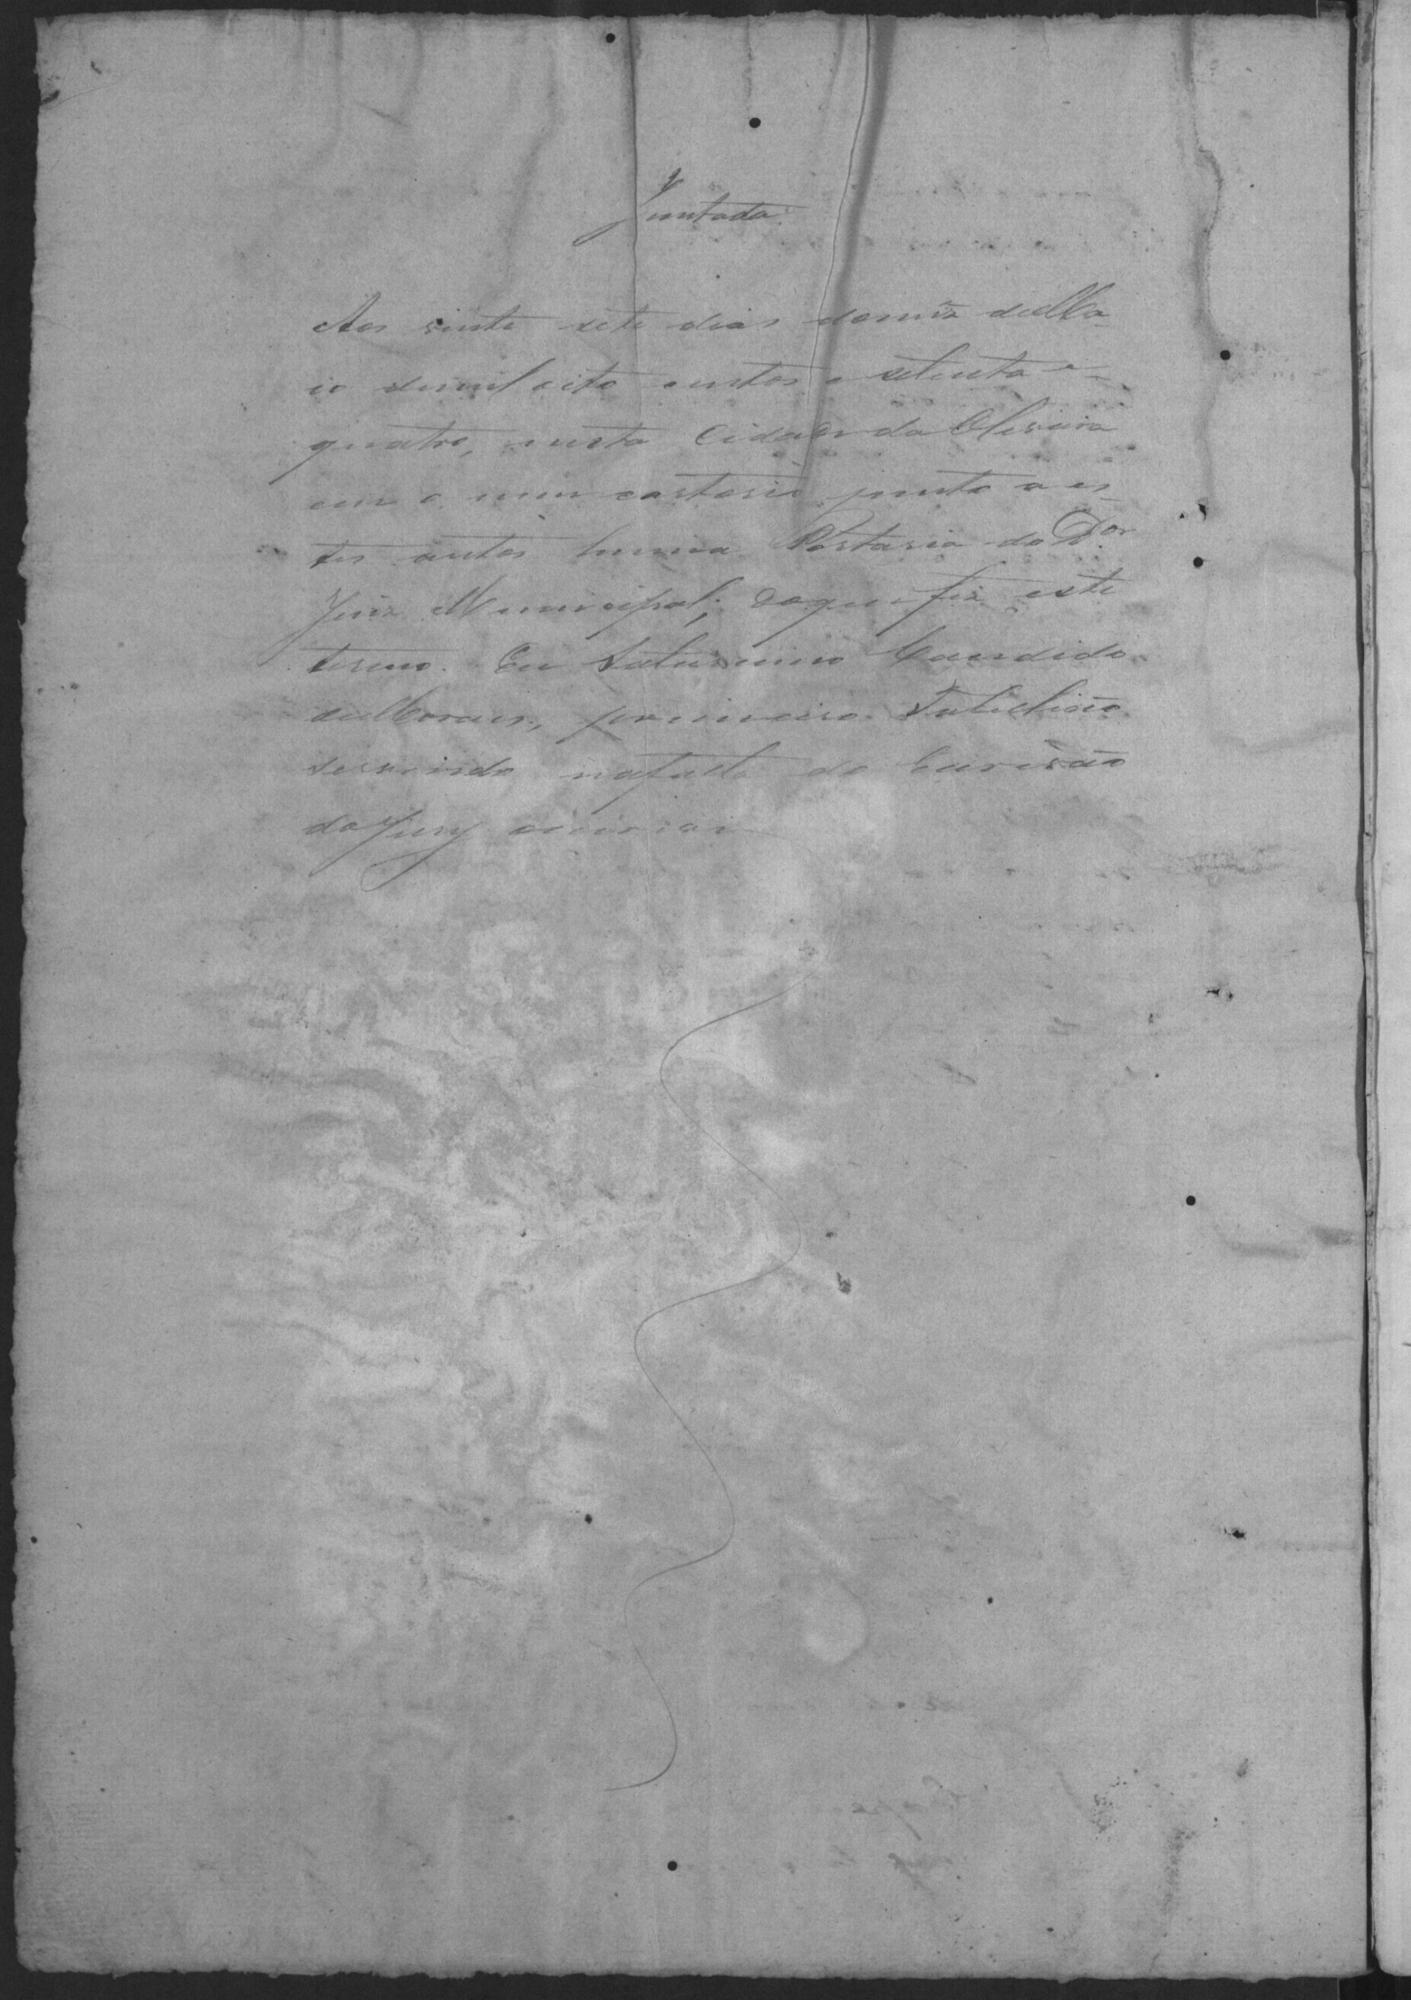 Juntada.
Aos vinte sete dias do mez de Ma-
io de mil oito centos e setenta e
quatro, nesta Cidade da Oliveira
em o meu cartorio junto a es-
tes autos huma Portaria do Dor
Juiz Municipal; do que fiz este
termo. Eu Saturnino Candido
de Moraes, primeiro Tabelião
servindo na falta do Escrivão
do Jury escrevi